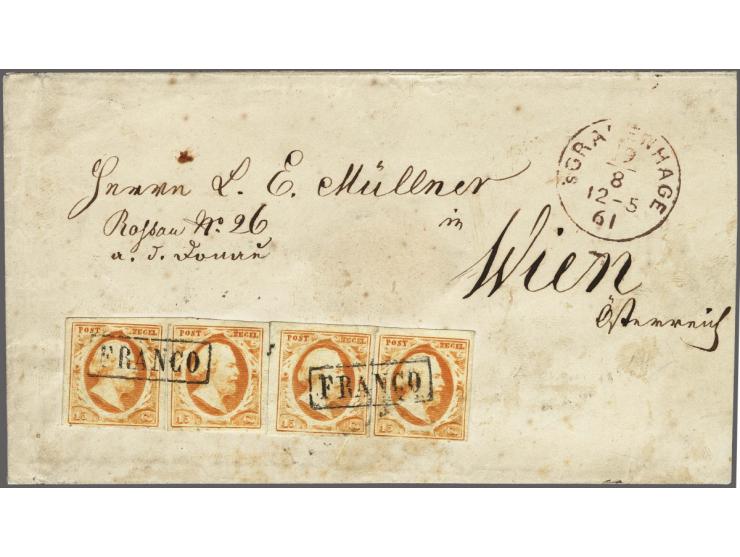 SGRAVENHAGE
19
8
12-5
61
Herrn L. E. Müllner
Rossau No. 26
a. d. Donau
in
Wien
Österreich
POST ZEGEL POST ZEGEL POST ZEGEL POST ZEGEL
FRANCO FRANCO
15 C 15 C 15 C 15 C